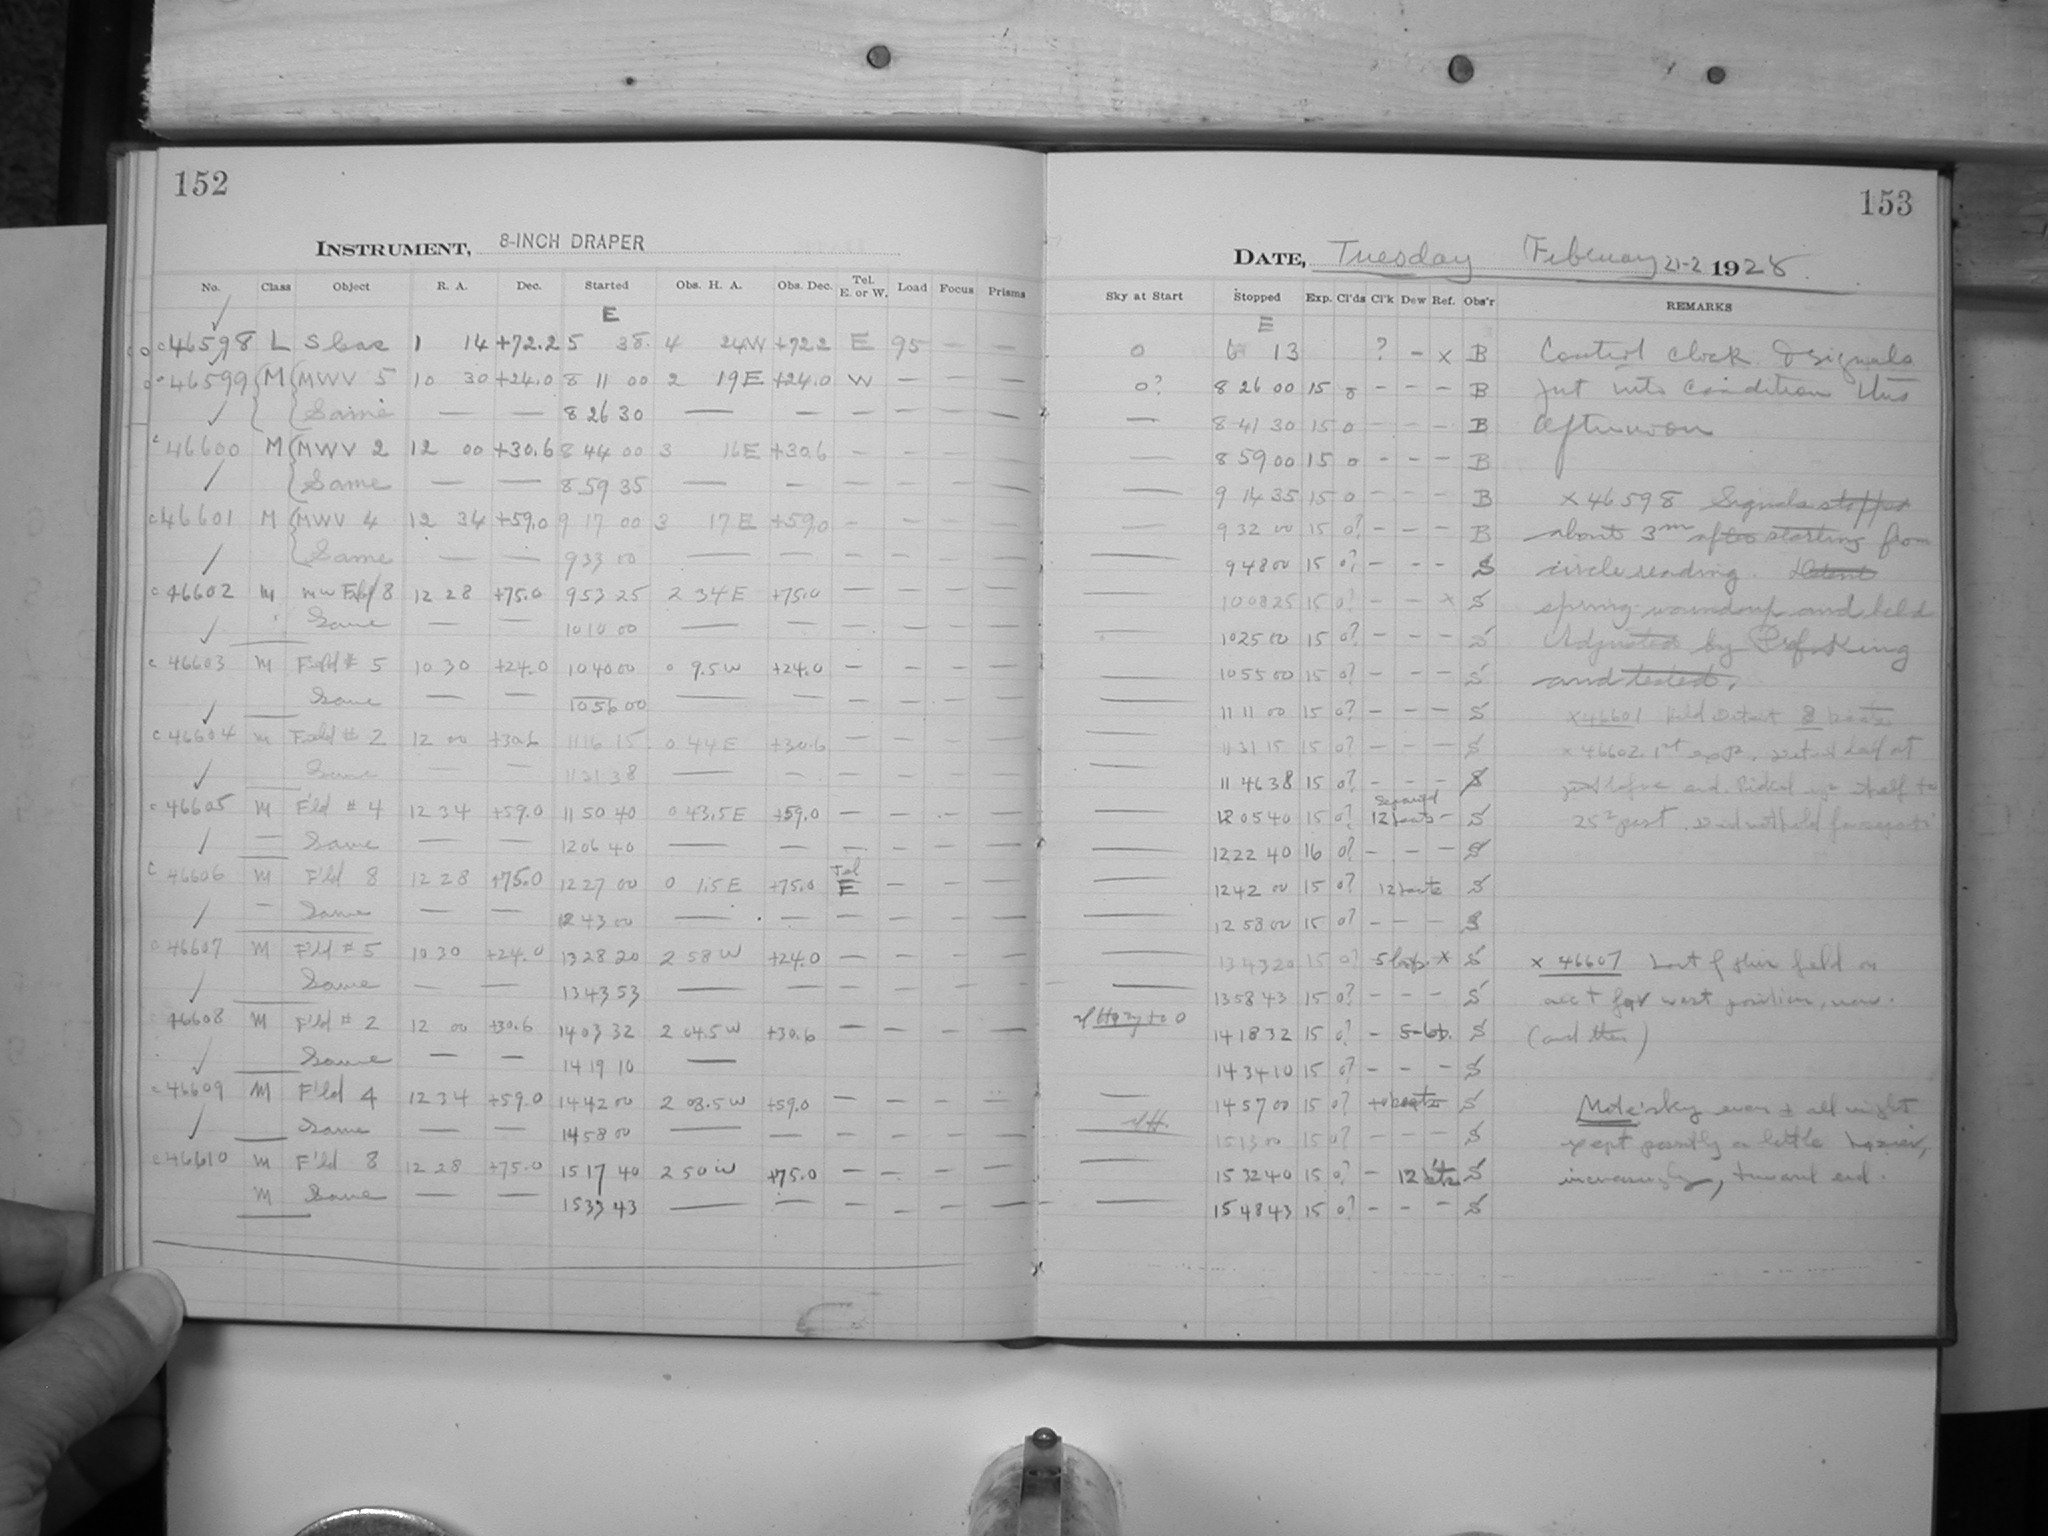 152
INSTRUMENT, 8-INCH DRAPER
No. Class Object R. A. Dec. Started Obs. H. A. Obs. Dec. Tel. E. or W. Load Focus Prisms
E
c46598 L S 1 14 +72.2 5 38 4 24W +72.2 E 95 — —
c46599 M MWV 5 10 30 +24.0 8 11 00 2 19E +24.0 W — — —
Same — — 8 26 30 — — — — — —
c46600 M MWV 2 12 00 +30.6 8 44 00 3 16E +30.6 — — — —
Same — — 8 59 35 — — — — — —
c46601 M MWV 4 12 34 +59.0 9 17 00 3 17E +59.0 — — — —
Same — — 9 33 00 — — — — — —
c46602 M MW 8 12 28 +75.0 9 53 25 2 34E +75.0 — — — —
Same — — 10 10 00 — — — — — —
c46603 M Field # 5 10 30 +24.0 10 40 00 0 9.5W +24.0 — — — —
Same — — 10 56 00 — — — — — —
c46604 M Field # 2 12 00 +30.6 11 16 15 0 44E +30.6 — — — —
Same — — 11 31 38 — — — — — —
c46605 M F'ld # 4 12 34 +59.0 11 50 40 0 43.5E +59.0 — — — —
— Same — — 12 06 40 — — — — — —
Tel
c46606 M F'ld 8 12 28 +75.0 12 27 00 0 1.5E +75.0 E — — —
— Same — — 12 43 00 — — — — — —
c46607 M F'ld # 5 10 30 +24.0 13 28 20 2 58W +24.0 — — — —
Same — — 13 43 53 — — — — — —
46608 M F'ld # 2 12 00 +30.6 14 03 32 2 04.5W +30.6 — — — —
Same — — 14 19 10 —
c46609 M F'ld 4 12 34 +59.0 14 42 00 2 08.5W +59.0 — — — —
Same — — 14 58 00 — — — — — —
c46610 M F'ld 8 12 28 +75.0 15 17 40 2 50W +75.0 — — — —
M Same — — 15 33 43 — — — — — —
153
DATE, Tuesday February 21-2 1928.
Sky at Start Stopped Exp. Cl'ds Cl'k Dew Ref. Obs'r REMARKS
E
0 6 13 ? – x B Control clock & signals
0? 8 26 00 15 0 – – – B put into condition this
— 8 41 30 15 0 – – – B afternoon
— 8 59 00 15 0 – – – B
— 9 14 35 15 0 – – – B x 46598 Signals stopped
— 9 32 00 15 0? – – – B about 3m after starting from
— 9 48 00 15 0? – – – S circle reading. Detent
— 10 08 25 15 0? – – x S spring and held
— 10 25 00 15 0? – – – S Adjusted by Prof. King
— 10 55 00 15 0? – – – S and tested.
— 11 11 00 15 0? – – – S x46601 Held Detent 8
— 11 31 15 15 0? – – – S x 46602 1st
— 11 46 38 15 0? – – – S
— 12 05 40 15 0? 12 beats – S 25s past. Did not hold
— 12 22 40 16 0? – – – S
— 12 42 00 15 0? 12 beats S
— 12 58 00 15 0? – – – S
— 13 43 20 15 0? 5 x S x 46607 Last of this field on
— 13 58 43 15 0? – – – S acc't far west position, now.
Hazy to 0 14 18 32 15 0? – 5-6b. S (and then)
14 34 10 15 0? – – – S
— 14 57 00 15 0? S Note: sky even all night
— 15 13 00 15 0? – – – S except possibly a little hazier,
— 15 32 40 15 0? – 12 S increasingly, toward end.
— 15 48 43 15 0? – – – S